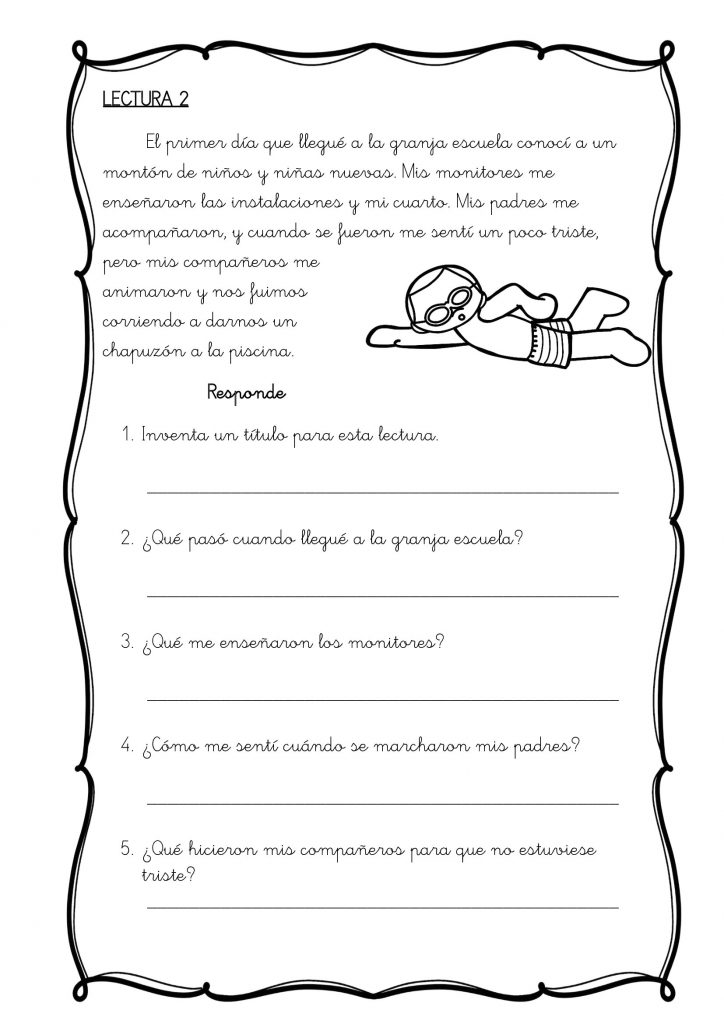 LECTURA 2
El primer día que llegué a la granja escuela conocí a un
montón de niños y niñas nuevas. Mis monitores me
enseñaron las instalaciones y mi cuarto. Mis padres me
acompañaron, y cuando se fueron me sentí un poco triste,
pero mis compañeros me
animaron y nos fuimos
corriendo a darnos un
chapuzón a la piscina.
Responde
1. Inventa un título para esta lectura.
2. ¿Qué pasó cuando llegué a la granja escuela?
3. ¿Qué me enseñaron los monitores?
4. ¿Cómo me sentí cuándo se marcharon mis padres?
5. ¿Qué hicieron mis compañeros para que no estuviese
triste?